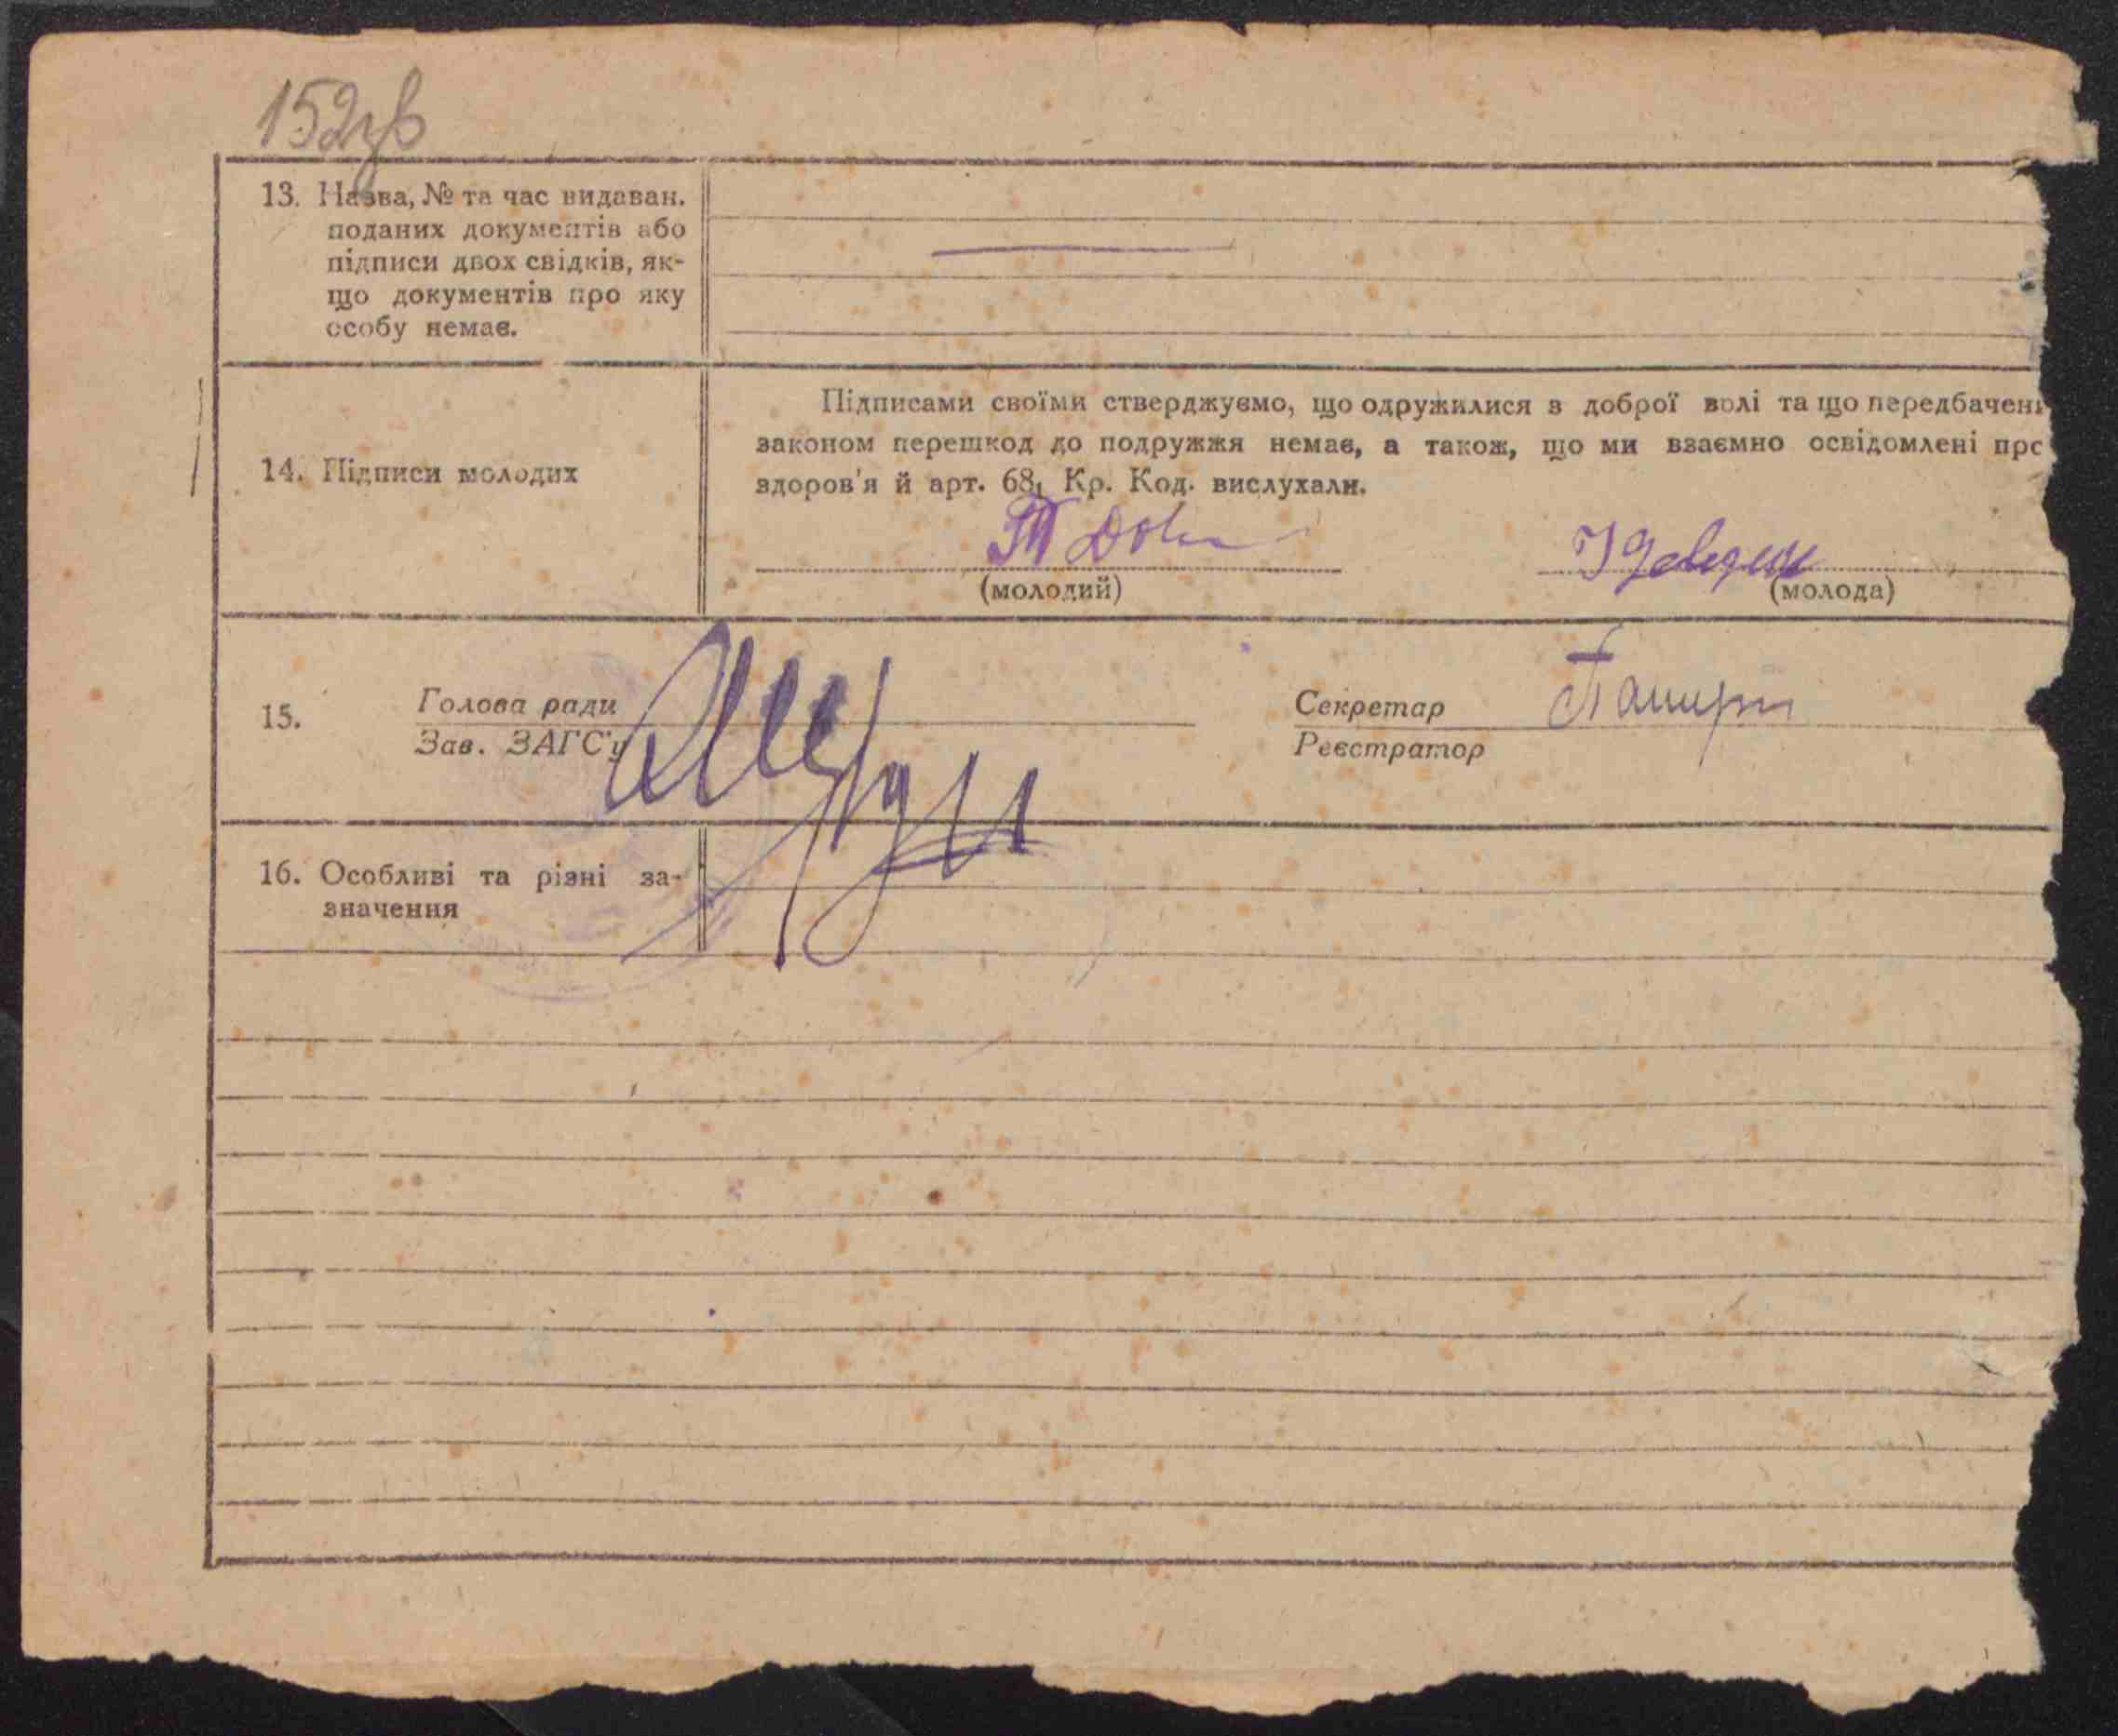 152зв
13. Назва, № та час видаван.
поданих документів або
підписи двох свідків, як-
що документів про яку
особу немає.
Підписами своїми стверджуємо, що одружилися з доброї волі та що передбачені
законом перешкод до подружжя немає, а також, що ми взаємно освідомлені про
здоров'я й арт. 68₁ Кр. Код. вислухали.
14. Підписи молодих
(молодий) (молода)
15. Голова ради Секретар
Зав. ЗАГС'у Реєстратор
16. Особливі та різні за-
значення